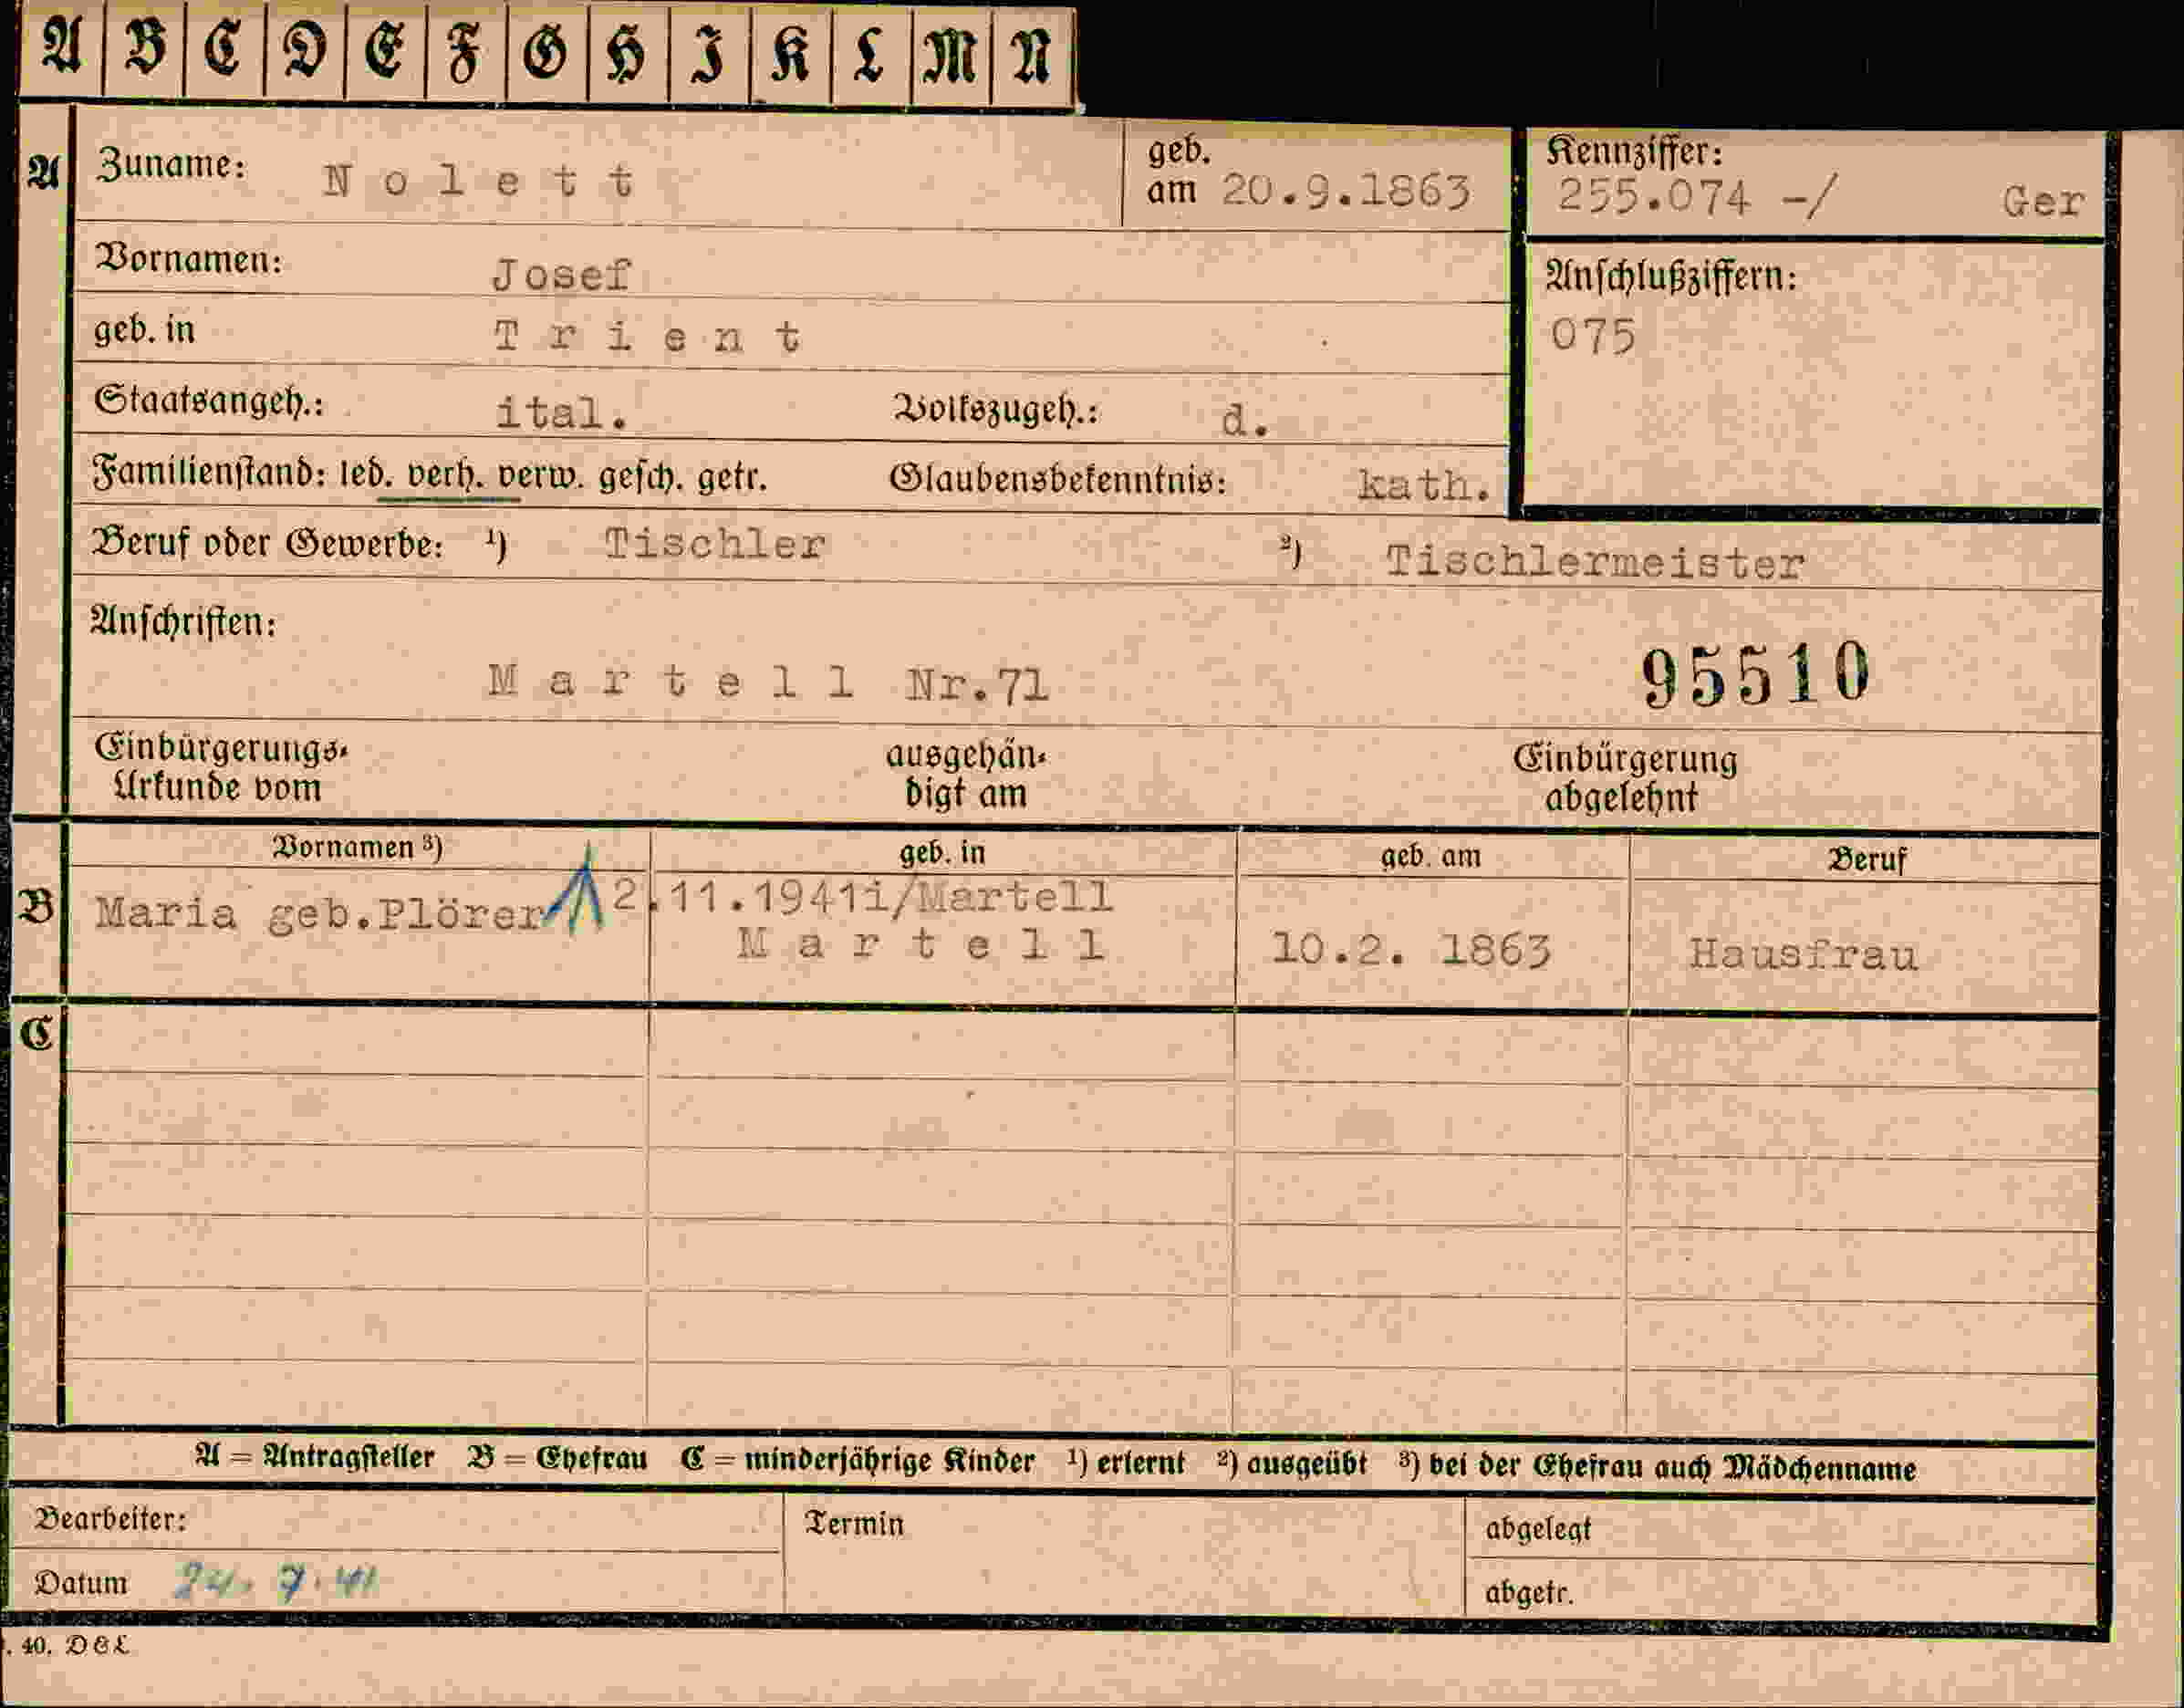 A B C D E F G H I K L M N
A Zuname: Nolett geb. am 20.9.1863 Kennziffer: 255.074 -/ Ger
Vornamen: Josef Anschlußziffern:
geb. in Trient 075
Staatsangeh.: ital. Volkszugeh.: d.
Familienstand: led. verh. verw. gesch. getr. Glaubensbekenntnis: kath.
Beruf oder Gewerbe: ¹) Tischler ²) Tischlermeister
Anschriften:
Martell Nr.71 95510
Einbürgerungs- ausgehän- Einbürgerung
Urkunde vom digt am abgelehnt
Vornamen ³) geb. in geb. am Beruf
B Maria geb.Plörer 2.11.1941i/Martell
Martell 10.2. 1863 Hausfrau
C
A = Antragsteller B = Ehefrau C = minderjährige Kinder ¹) erlernt ²) ausgeübt ³) bei der Ehefrau auch Mädchenname
Bearbeiter: Termin abgelegt
Datum 24. 7. 41 abgetr.
. 40. D&L